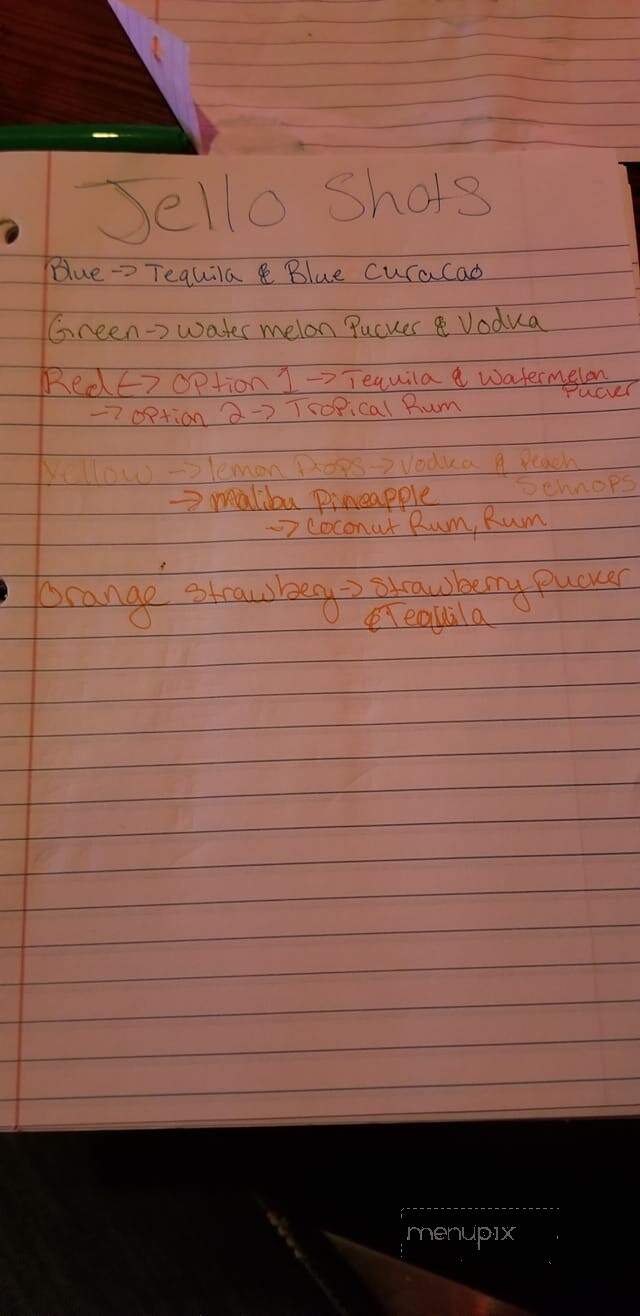 Jello Shots
Blue -> Tequila & Blue Curacao
Green -> Watermelon Pucker & Vodka
Red -> Option 1 -> Tequila & Watermelon
Pucker
-> Option 2 -> Tropical Rum
Yellow -> lemon Drops -> Vodka & Peach
Schnops
-> malibu Pineapple
-> Coconut Rum, Rum
Orange Strawbery -> Strawberry Pucker
& Tequila
menupix